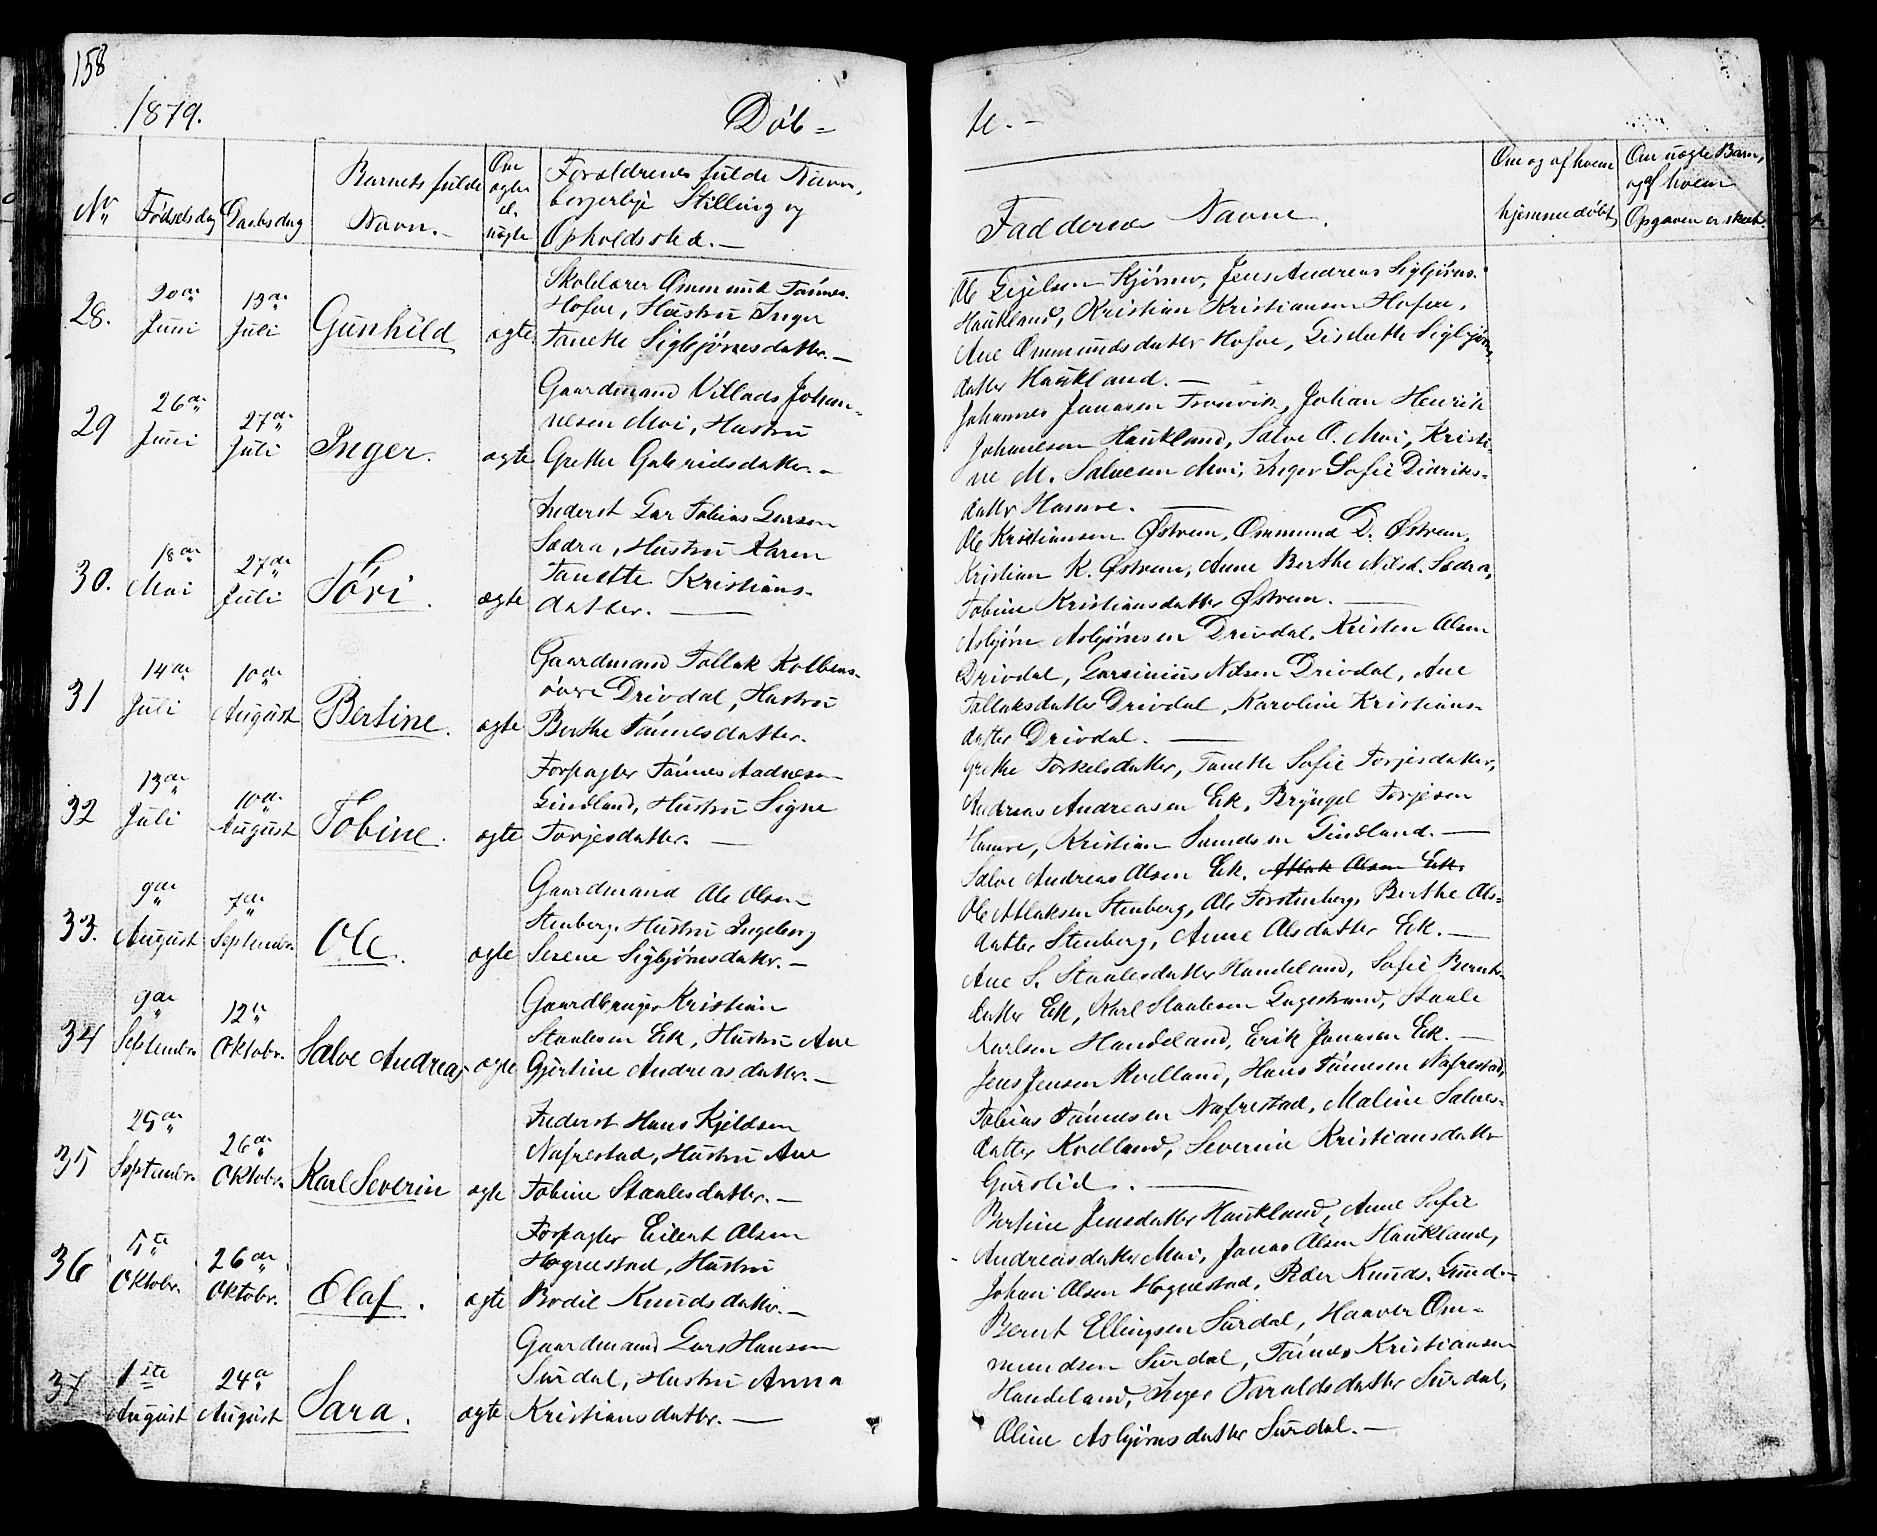 158
1879.
Døb=
te. -
No
Fødselsdag
Daabsdag
Barnets fulde
Navn. -
Om
ægte
el.
uægte
Forældrenes fulde Navn,
borgerlige Stilling og
Opholdssted. -
Faddernes Navne.
Om og af hvem
hjemmedøbt
Om uægte Barn,
og af hvem
Opgaven er skeet.
28.
20de
Juni
13de
Juli
Gunhild
ægte
Skolelærer Ommund Tønnes.
Hofve, Hustru Inger
Tanette Sigbjørnsdatter. -
Ole Gejelsen Kjørner, Jens Andreas Sigbjørns.
Haukland, Kristian Kristiansen Hofve,
Ane Ommundsdatter Hofve, Lisebeth Sigbjørns
datter Haukland. -
29
26de
Juni
27de
Juli
Inger.
ægte
Gaardmand Villads Johan-
nesen Moi, Hustru
Grethe Gabrielsdatter. -
Johannes Jonasen Tronvik, Johan Henrik
Johanesen Haukland, Salve O. Moi, Kristi-
ne M. Salvesen Moi, Inger Sofie Didriks-
datter Hamre. -
30.
18de
Mai
27de
Juli
Tóri.
ægte
Inderst Lar Tobias Larsen
Sædra, Hustru Karen
Tanette Kristians-
datter. -
Ole Kristiansen Østrem, Ommund D. Østrem,
Kristian K. Østrem, Anne Berthe Nilsd. Sædra,
Tobine Kristiansdatter Østrem. -
31
14de
Juli
10de
August
Bertine.
ægte
Gaardmand Tollak Kolbens-
Drivdal, Hustru
Berthe Tønnesdatter.
Asbjørn Asbjørnsen Drivdal, Kristen Olsen
Drivdal, Larsinius Nilsen Drivdal, Ane
Tollaksdatter Drivdal, Karoline Kristians-
datter Drivdal. -
32
13de
Juli
10de
August
Tobine.
ægte
Forpagter Tønnes Aadnesen
Lindland, Hustru Signe
Torjesdatter. -
Grethe Torkelsdatter, Tanette Sofie Torjesdatter,
Andreas Andreasen Eik, Bryngel Torjesen
Hamre, Kristian Samdsen Lindland. -
33.
9de
August
7de
Septembr.
Ole.
ægte
Gaardmand Ole Olsen
Stenberg, Hustru Ingeborg
Serene Sigbjørnsdatter. -
Salve Andreas Olsen Eik, Atlak Olsen Eik,
Ole Atlaksen Stenberg, Ole Torstenberg, Berthe Ols-
datter Stenberg, Anne Olsdatter Eik. -
34
9de
Septembr.
12te
Oktobr.
Salve Andreas
ægte
Gaardbruger Kristian
Staalesen Eik, Hustru Ane
Gjertine Andreasdatter. -
Ane S. Staalesdatter Handeland, Sofie Bernts-
datter Eik, Karl Staalesen Lagestrand, Staale
Karlsen Handeland, Erik Jonasen Eik. -
35
25de
Septembr.
26de
Oktobr.
Karl Severin
ægte
Inderst Hans Kjeldsen
Nafrestad, Hustru Ane
Tobine Staalesdatter. -
Jens Jensen Kvelland, Hans Tønnesen Nafrestad,
Tobias Tønnesen Nafrestad, Maline Salves-
datter Kvelland, Severine Kristiansdatter
Gurslid. -
36
5te
Oktobr.
26de
Oktobr.
Olaf.
ægte
Forpagter Eilert Olsen
Hognestad, Hustru
Bodil Knudsdatter. -
Bertine Jensdatter Haukland, Anne Sofie
Andreasdatter Moi, Jonas Olsen Haukland,
Johan Olsen Hognestad, Peder Knuds. Lund. -
37
1ste
August
24de
August
Sara.
ægte
Gaardmand Lars Hansen
Surdal, Hustru Anna
Kristiansdatter. -
Bernt Ellingsen Surdal, Haaver Om-
mundsen Surdal, Tønnes Kristiansen
Handeland, Inger Taraldsdatter Surdal,
Oline Asbjørnsdatter Surdal. -